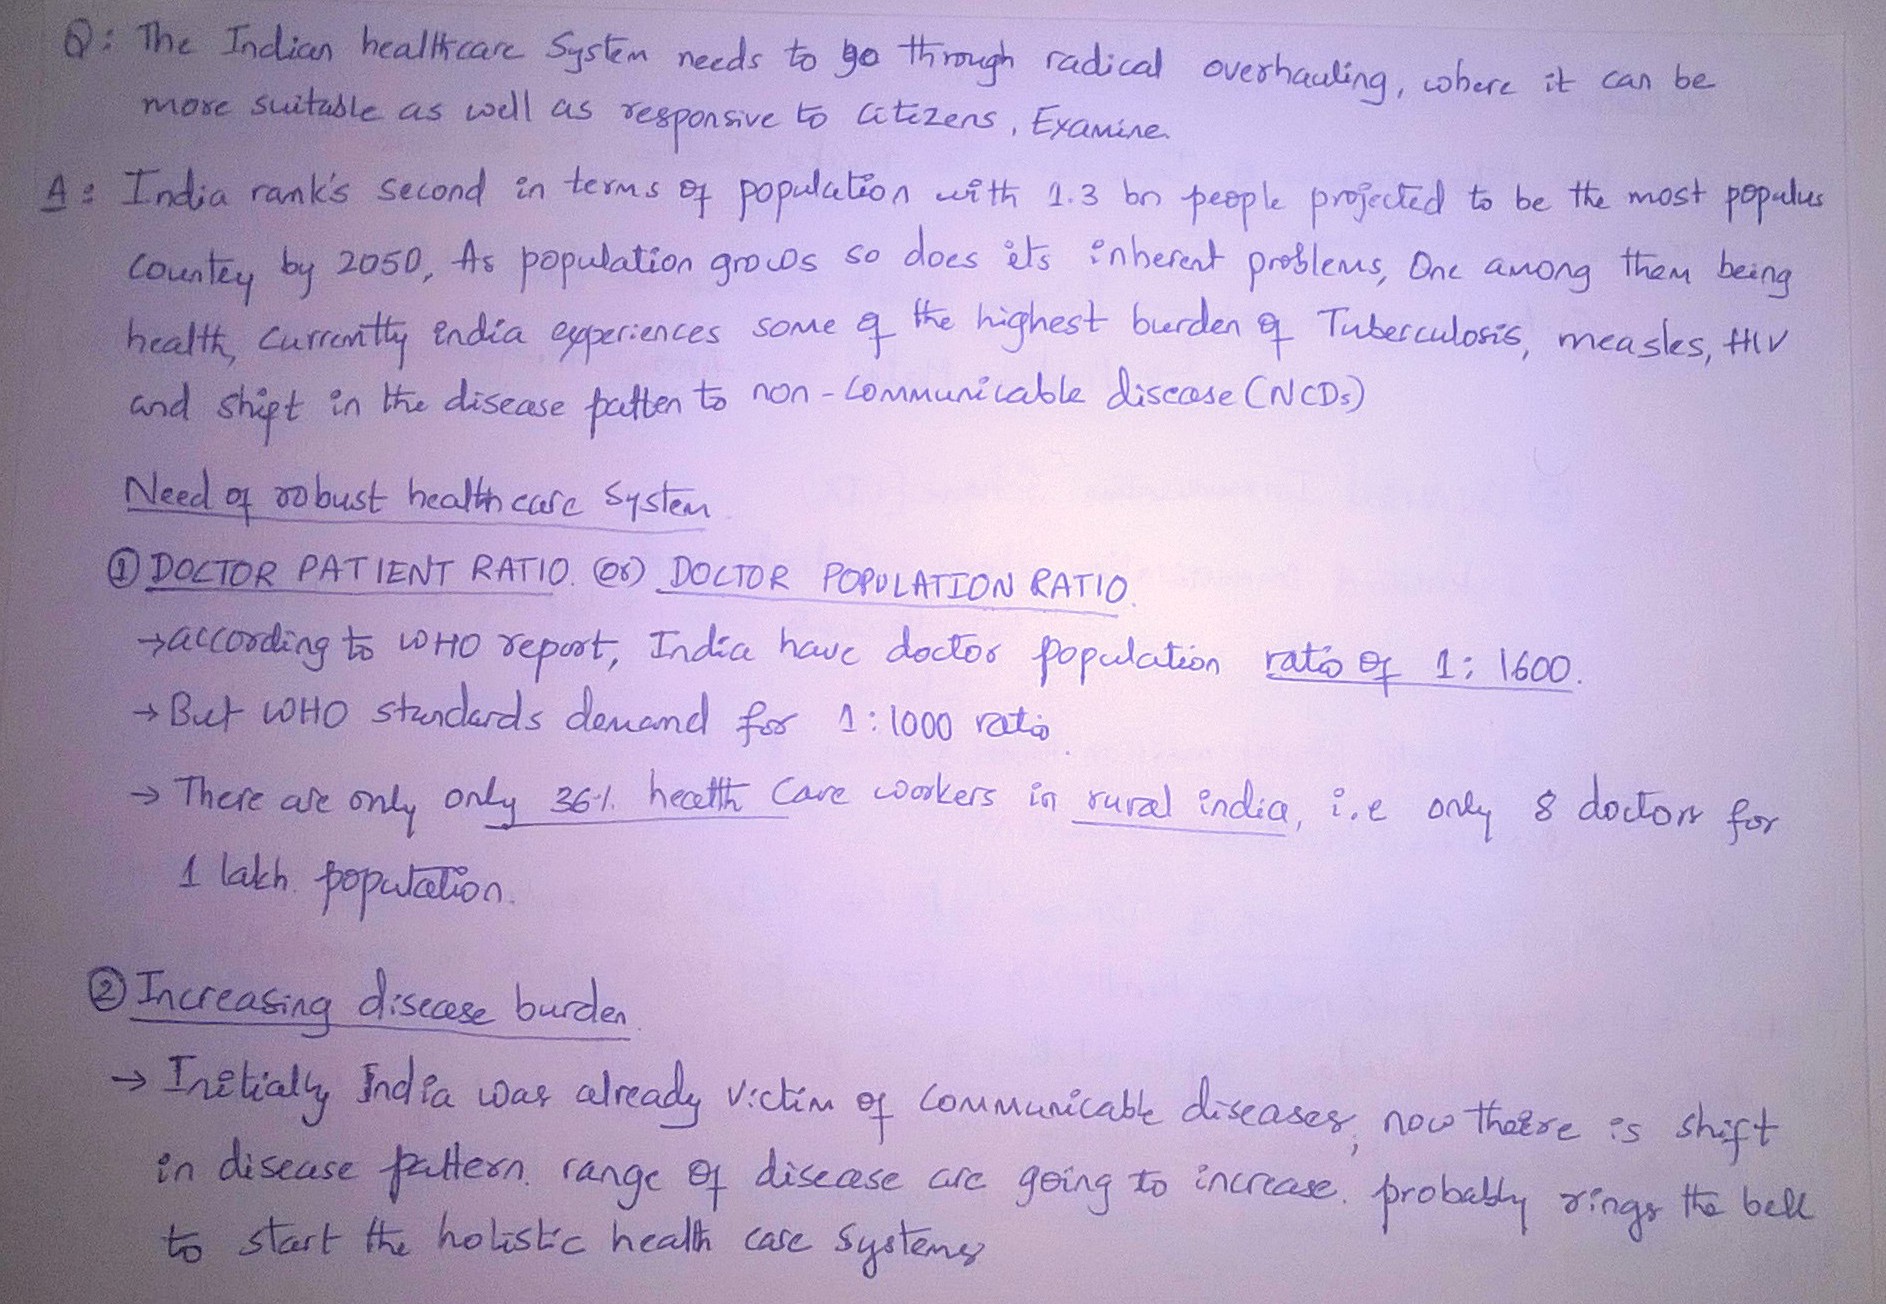 Q: The Indian healthcare System needs to go through radical overhauling, where it can be
more suitable as well as responsive to Citizens, Examine.
A: India rank's second in terms of population with 1.3 bn people projected to be the most populus
Country by 2050, As population grows so does its inherent problems, One among them being
health, Currently india experiences some of the highest burden of Tuberculosis, measles, HIV
and shift in the disease patten to non-Communicable disease (NCDs)
Need of robust health care System
① DOCTOR PATIENT RATIO. (or) DOCTOR POPULATION RATIO.
→according to WHO report, India have doctor population ratio of 1: 1600.
→But WHO standards demand for 1:1000 ratio.
→ There are only only 36% health Care workers in rural india, i.e only 8 doctors for
1 lakh population.
② Increasing disease burden
→ Initially India was already victim of Communicable diseases, now there is shift
in disease pattern. range of disease are going to increase. probably rings the bell
to start the holistic health care systems